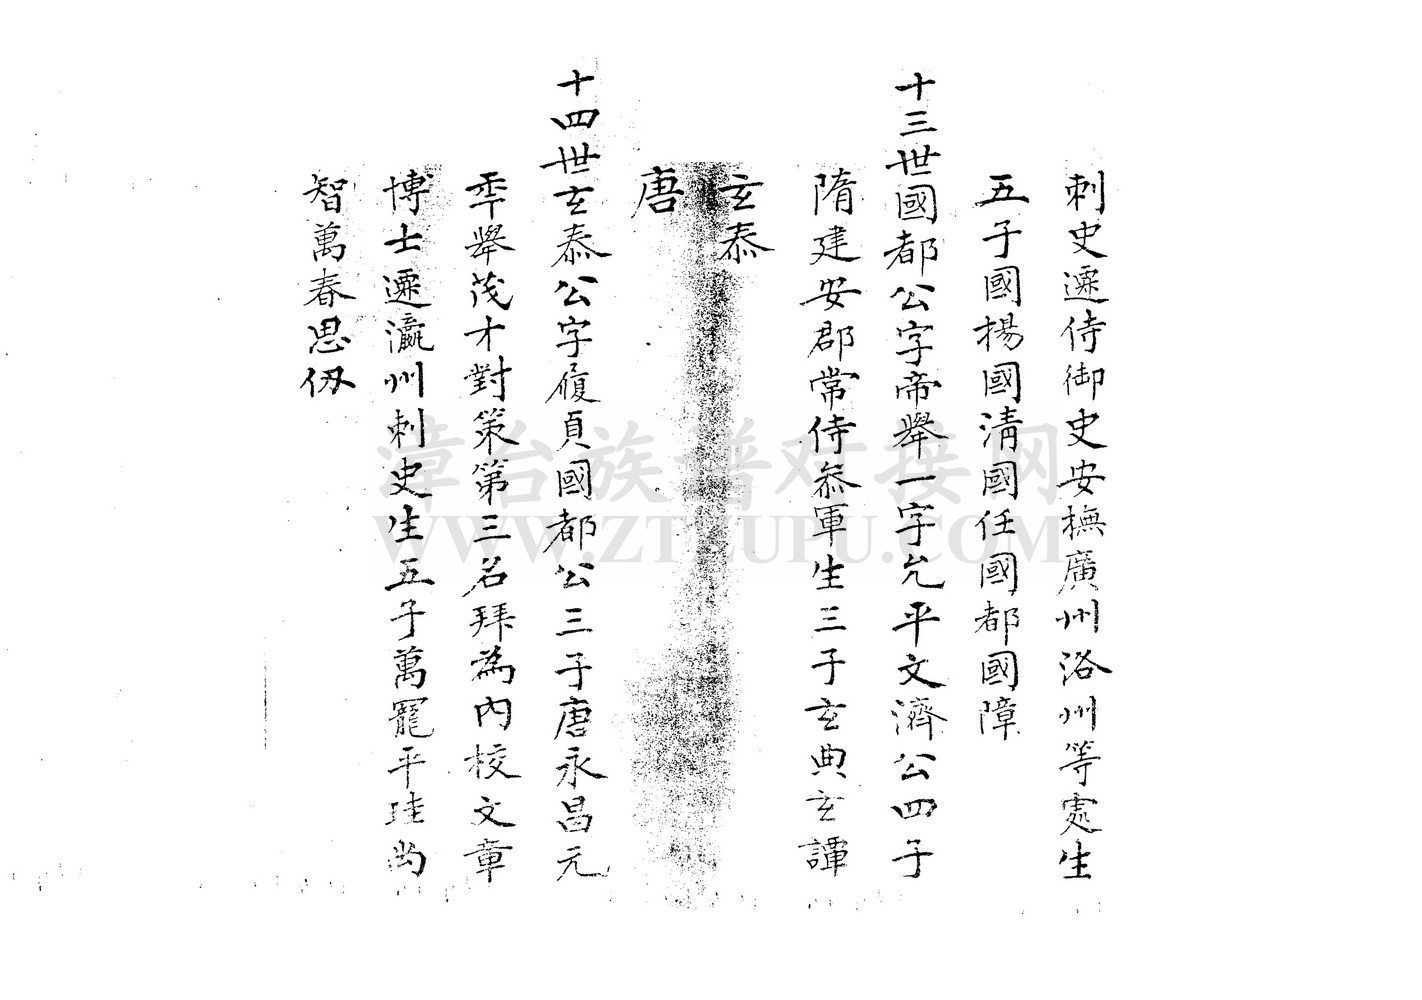 刺史遷侍御史安撫廣州洛州等處生
五子國楊國清國任國都國障
十三世國都公字帝舉一字允平文濟公四子
隋建安郡常侍叅軍生三子玄典玄譚
玄泰
唐
十四世玄泰公字履貞國都公三子唐永昌元
年舉茂才對策第三名拜為內校文章
博士遷瀛州刺史生五子萬寵平珪尚
智萬春思
漳台族谱对接网
WWW.ZTZUPU.COM